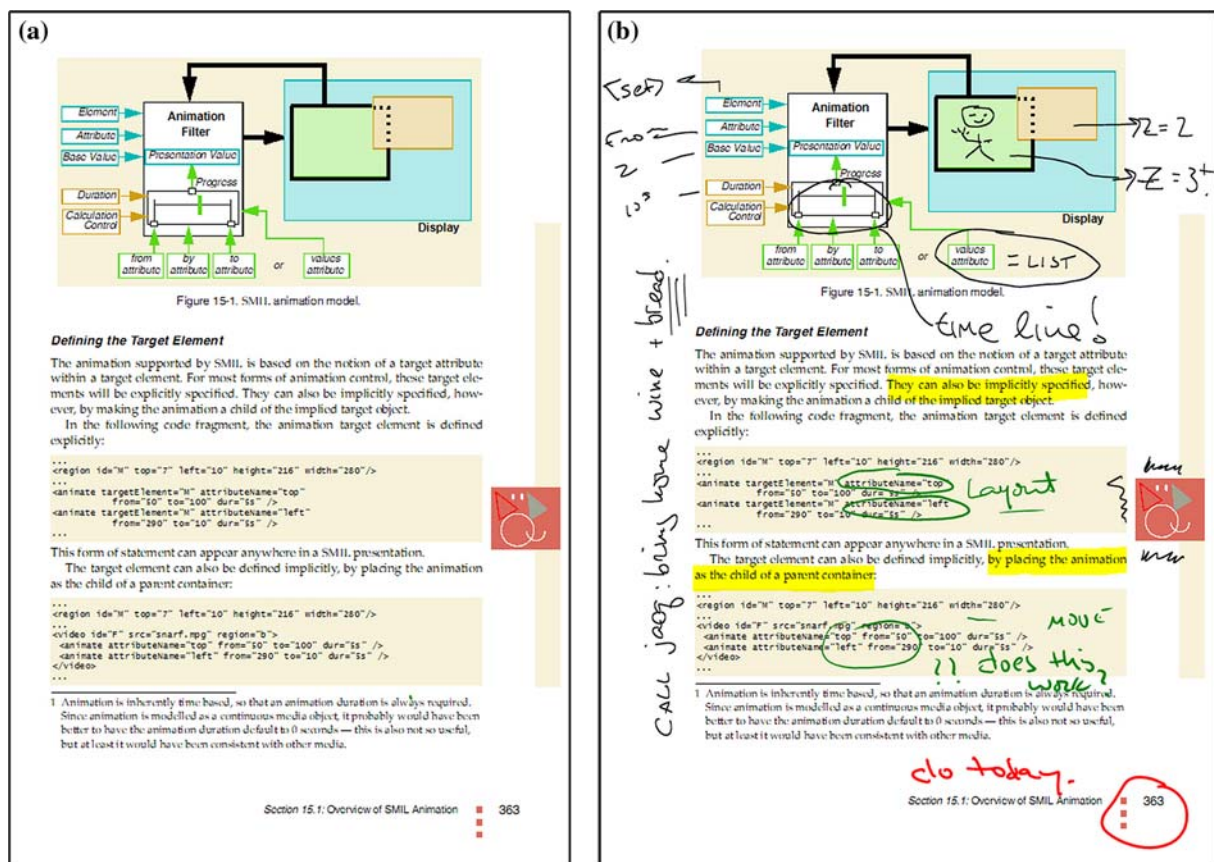 (a)
Element
Attribute
Base Value
Animation
Filter
Presentation Value
Progress
Duration
Calculation
Control
Display
from
attribute
by
attribute
to
attribute
or
values
attribute
Figure 15-1. SMIL animation model.
Defining the Target Element
The animation supported by SMIL is based on the notion of a target attribute
within a target element. For most forms of animation control, these target ele-
ments will be explicitly specified. They can also be implicitly specified, how-
ever, by making the animation a child of the implied target object.
In the following code fragment, the animation target element is defined
explicitly:
...
<region id="M" top="7" left="10" height="216" width="280"/>
...
<animate targetElement="M" attributeName="top"
from="50" to="100" dur="5s" />
<animate targetElement="M" attributeName="left"
from="290" to="10" dur="5s" />
...
This form of statement can appear anywhere in a SMIL presentation.
The target element can also be defined implicitly, by placing the animation
as the child of a parent container:
...
<region id="M" top="7" left="10" height="216" width="280"/>
...
<video id="F" src="snarf.mpg" region="b">
<animate attributeName="top" from="50" to="100" dur="5s" />
<animate attributeName="left" from="290" to="10" dur="5s" />
</video>
...
1 Animation is inherently time based, so that an animation duration is always required.
Since animation is modelled as a continuous media object, it probably would have been
better to have the animation duration default to 0 seconds — this is also not so useful,
but at least it would have been consistent with other media.
Section 15.1: Overview of SMIL Animation 363
(b)
[set]
From
2
10s
Element
Attribute
Base Value
Animation
Filter
Presentation Value
Progress
Duration
Calculation
Control
Display
Z=2
Z=3+!
from
attribute
by
attribute
to
attribute
or
values
attribute
= LIST
Figure 15-1. SMIL animation model.
time line!
CALL jacq: bring home wine + bread.
Defining the Target Element
The animation supported by SMIL is based on the notion of a target attribute
within a target element. For most forms of animation control, these target ele-
ments will be explicitly specified. They can also be implicitly specified, how-
ever, by making the animation a child of the implied target object.
In the following code fragment, the animation target element is defined
explicitly:
...
<region id="M" top="7" left="10" height="216" width="280"/>
...
<animate targetElement="M" attributeName="top"
from="50" to="100" dur="5s" />
<animate targetElement="M" attributeName="left"
from="290" to="10" dur="5s" />
...
Layout
This form of statement can appear anywhere in a SMIL presentation.
The target element can also be defined implicitly, by placing the animation
as the child of a parent container:
...
<region id="M" top="7" left="10" height="216" width="280"/>
...
<video id="F" src="snarf.mpg" region="b">
<animate attributeName="top" from="50" to="100" dur="5s" />
<animate attributeName="left" from="290" to="10" dur="5s" />
</video>
...
MOVE
!! does this
work?
1 Animation is inherently time based, so that an animation duration is always required.
Since animation is modelled as a continuous media object, it probably would have been
better to have the animation duration default to 0 seconds — this is also not so useful,
but at least it would have been consistent with other media.
do today.
Section 15.1: Overview of SMIL Animation 363